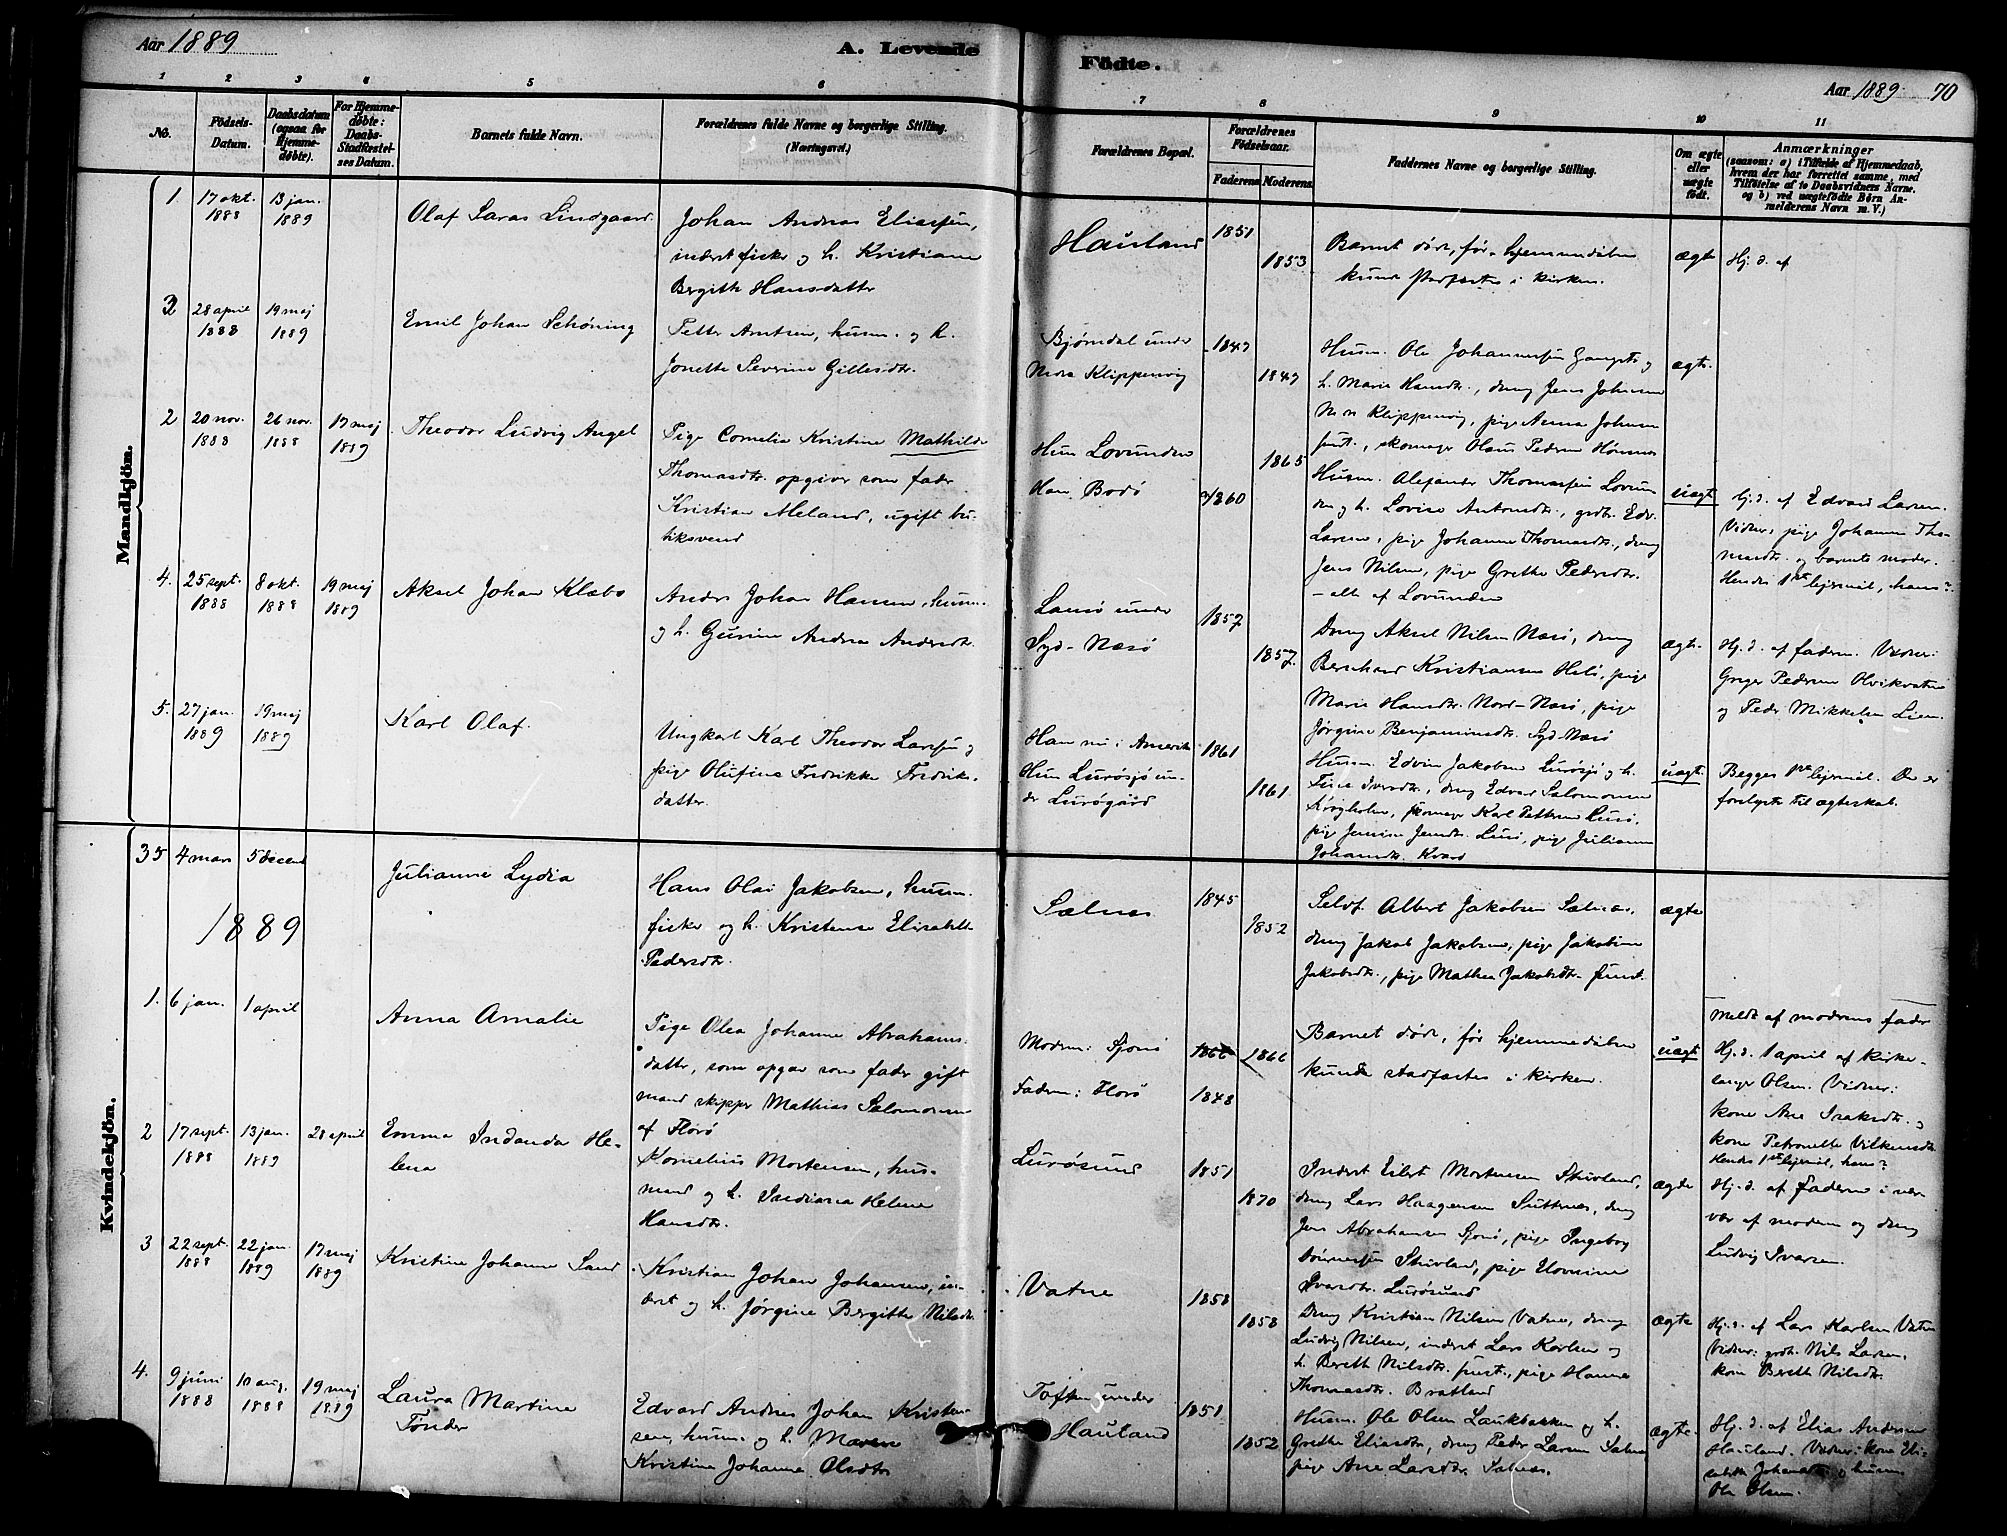 Aar 1889
A. Levende
Födte.
Aar 1889.
70
1 2 3 4 5 6
7 8 9 10 11
No.
Födsels-
Datum.
Daabsdatum
(ogsaa for
Hjemme-
döbte).
For Hjemme-
döbte:
Daabs-
Stadfæstel-
ses Datum.
Barnets fulde Navn.
Forældrenes fulde Navne og borgerlige Stilling.
(Næringsvei.)
Forældrenes Bopæl.
Forældrenes
Födselsaar.
Faderens Moderens
Faddernes Navne og borgerlige Stilling.
Om ægte
eller
uægte
født.
Anmærkninger
(saasom: a) i Tilfælde af Hjemmedaab,
hvem der har forrettet samme, med
Tilföielse af to Daabsvidners Navne.
og b) ved uægtefödte Börn An-
melderens Navn m. V.)
Mandkjön.
1
17 okt.
1888
13 jan.
1889
Olaf Saras Lindgaard
Johan Andreas Eliassen,
inderst fisker og h. Kristiane
Bergitte Hansdatter
Hauland
1851
1853
Barnet døde, før hjemmedåben
kunde stadfæstes i kirken.
ægte
Hj. d. af
28 april
1888
19 maj
1889
Emil Johan Schøning
Petter Arntsen, husm. og h.
Jonette Severine Gillesdtr.
Bjørndal under
Nedre Klippenvig
1849
Husm. Ole Johannessen
h. Marie Hansdtr., dreng Jens Johnsen
Klippenvig, pige Anna Johnsen
smst., skomager Olaus Pedersen
ægte
2
20 nov.
1888
26 nov.
1888
17 maj
1889
Theodor Ludvig Angel
Pige Cornelia Kristine Mathilde
Thomasdtr. opgiver som fader
Kristian Meland, ugift bu-
tiksvend
Hun Lovunden
Han Bodø
1865
Husm. Alexander Thomassen Lovun-
den og h. Lovise Antonsdtr., grdb. Edv.
Larsen, pige Johanne Thomasdtr., dreng
Jens Nilsen, pige Grethe Pedersdtr.
– alle af Lovunden
uægte
Hj. d. af Edvard Larsen.
Vidner: pige Johanne Tho-
masdtr. og barnets moder.
Hendes 1ste lejermål, hans?
4.
25 sept.
1888
8 okt.
1888
19 maj
1889
Aksel Johan Klæbo
Anders Johan Hansen, husm.
og h. Gurine Andrea Andersdtr.
under
Syd-Næsø
1857
1857.
Dreng Aksel Nilsen Næsø, dreng
Bernhard Kristiansen, pige
Marie Hansdtr. Nord-Næsø, pige
Jørgine Benjaminsdtr. Syd-Næsø
ægte
Hj. d. af faderen. Vidner:
Greger Pedersen
og Peder Mikkelsen Lien.
5.
27 jan.
1889
19 maj
1889
Karl Olaf.
Ungkarl Karl Theodor Larssen og
pige Olufine Fredrikke Fredriks-
datter.
Han nu i Amerika
Hun Lurøsjø un-
der Lurøgård
1861
1861.
Husm. Edvin Jakobsen Lurøsjø og h.
dreng Edvard Salomonsen
skomager Karl Pettersen Lurø,
pige Jensine Jensdtr. Lurø, pige Juliane
Johansdtr. Kvarø
uægte
Begges 1ste lejermål. De er
forlyste til ægteskab.
Kvindekjön.
35
4 mars
5 decem
Julianne Lydia
Hans Olai Jakobsen, husm.
fisker og h. Kristense Elisabeth
Pedersdtr.
Selnes
1845
1852
Selvf. Albert Jakobsen Selnes,
dreng Jakob Jakobsen, pige Jakobine
Jakobsdtr., pige Mathea Jakobsdtr. smst.
ægte
1889
1.
6 jan.
1 april
Anna Amalie
Pige Olea Johanne Abrahams-
datter, som opgav som fader gift
mand skipper Mathias Salomonsen
af Florø
Moderen: Sjonø
Faderen: Florø
1866
1848
Barnet døde, før hjemmedåben
kunde stadfæstes i kirken.
uægte
Meldt af moderens fader
Hj. d. 1 april af kirke-
sanger Olsen. Vidner:
kone Ane Isaksdtr. og
kone Petronelle Vilkensdtr.
Hendes 1ste lejermål, hans?
2
17 sept.
1888
13 jan.
1889
28 april
Emma Indianda He-
lena
Kornelius Mortensen, hus-
mand og h. Indiana Helene
Hansdtr.
Lurøsund
1851
1870
Inderst Eilert Mortensen Stuvland,
dreng Lars Haagensen, dreng
Jens Abrahamsen Sjonø, pige Ingeborg
Stuvland, pige
Ivarsdtr. Lurøsund
ægte
Hj. d. af faderen i nær-
vær af moderen og dreng
Ludvig Ivarsen.
3
22 sept.
1888
22 jan.
1889
17 maj
1889
Kristine Johanne Sand
Kristian Johan Johansen, in-
derst og h. Jørgine Bergitte Nilsdtr.
Vatne
1858
1858
Dreng Kristian Nilsen Vatne, dreng
Ludvig Nilsen, inderst Lars Karlsen og
h. Bereth Nilsdtr. smst., pige Hanna
Thomasdtr. Bratland
ægte
Hj. d. af Lars Karlsen Vatne
Vidner: grdb. Nils Larsen,
kone Bereth Nilsdtr.
4.
9 juni
1888
10 aug.
1888
19 maj
1889
Laura Martine
Tonder
Edvard Andreas Johan Kristen-
sen, husm. og h. Maren
Kristine Johanna Olsdtr.
Toften under
Hauland
1851
1852
Husm. Ole Olsen Laukbakken og h.
Grethe Eliasdtr., dreng Peder Larsen Selnes
pige Ane Larsdtr. Selnes.
ægte
Hj. d. af Elias Andersen
Hauland. Vidner: kone Eli-
sabeth og husm.
Ole Olsen.